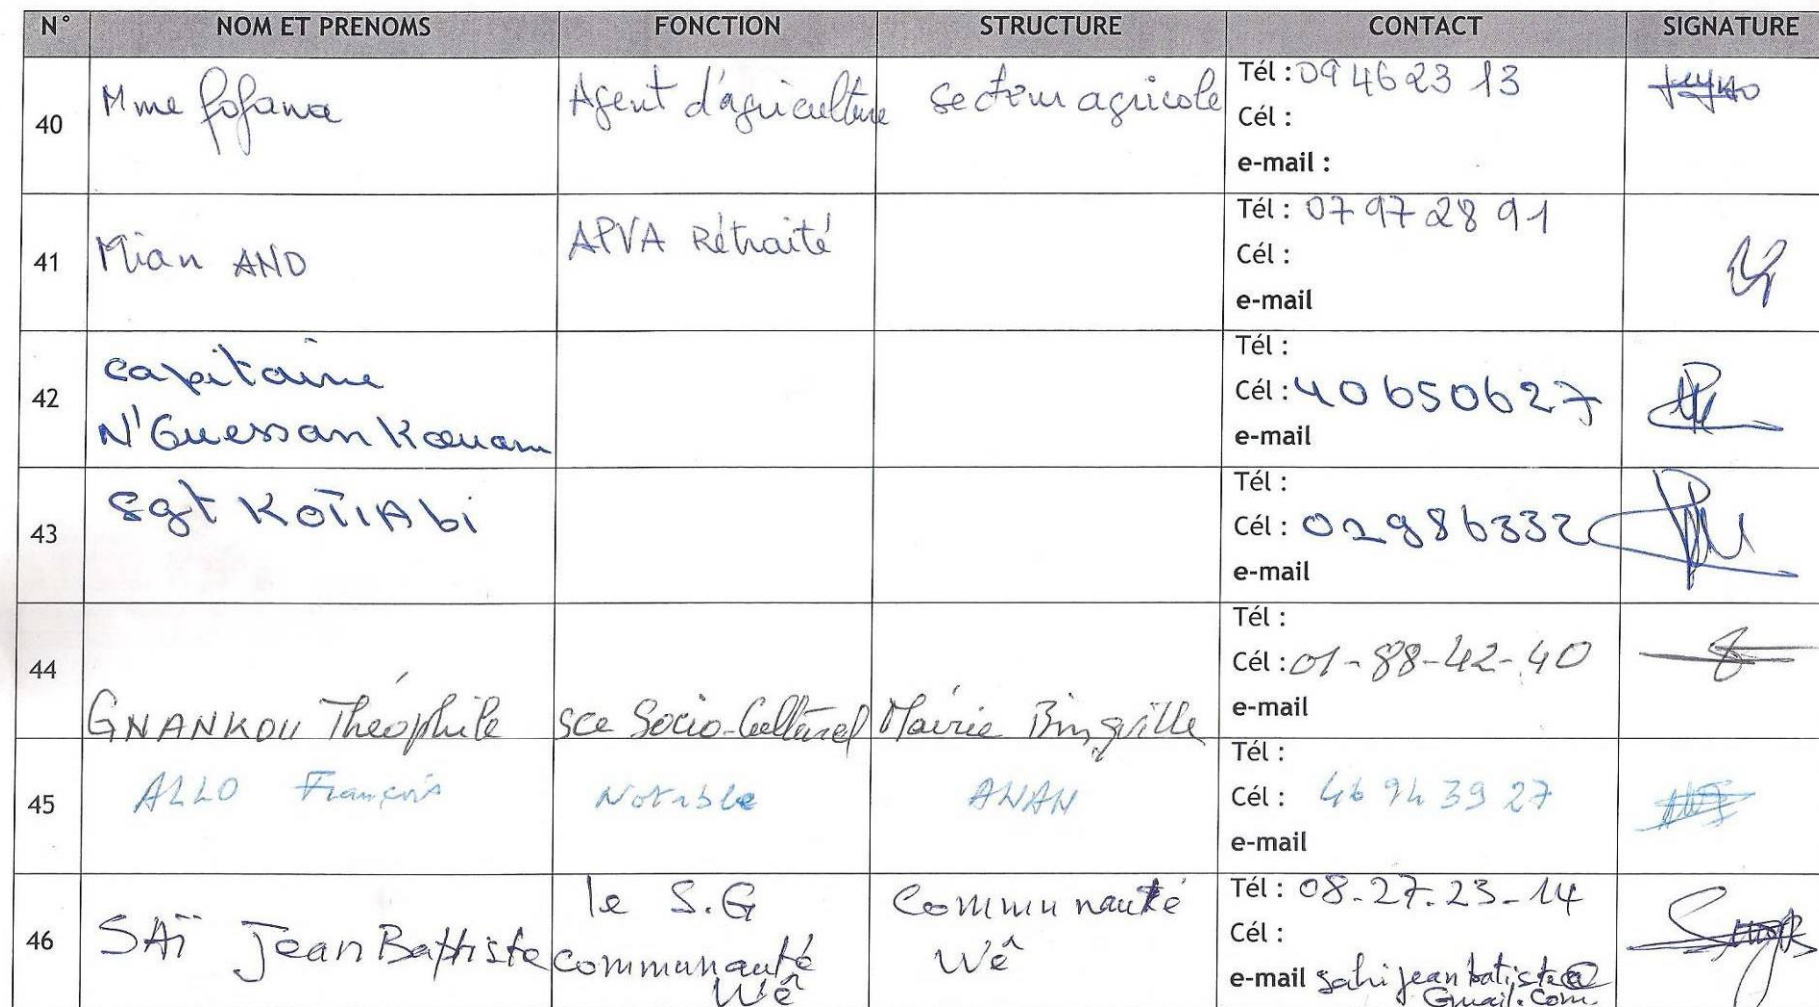 N° NOM ET PRENOMS FONCTION STRUCTURE CONTACT SIGNATURE
40 Mme fofana Agent d'agriculture secteur agricole Tél : 09 46 23 13
Cél :
e-mail :
41 Mian AND APVA Rétraité Tél : 07 97 28 91
Cél :
e-mail
42 capitaine N'Guessan Tél :
Cél : 40650627
e-mail
43 Sgt Tél :
Cél : 02986332
e-mail
44 GNANKOU Théophile sce Socio-Culturel Mairie Bingville Tél :
Cél : 01-88-42-40
e-mail
45 ALLO François Notable ANAN Tél :
Cél : 46 94 39 27
e-mail
46 SAÏ Jean Baptiste le S.G communauté Wê Communauté Wê Tél : 08-27-23-14
Cél :
e-mail sahijeanbatiste@Gmail.com